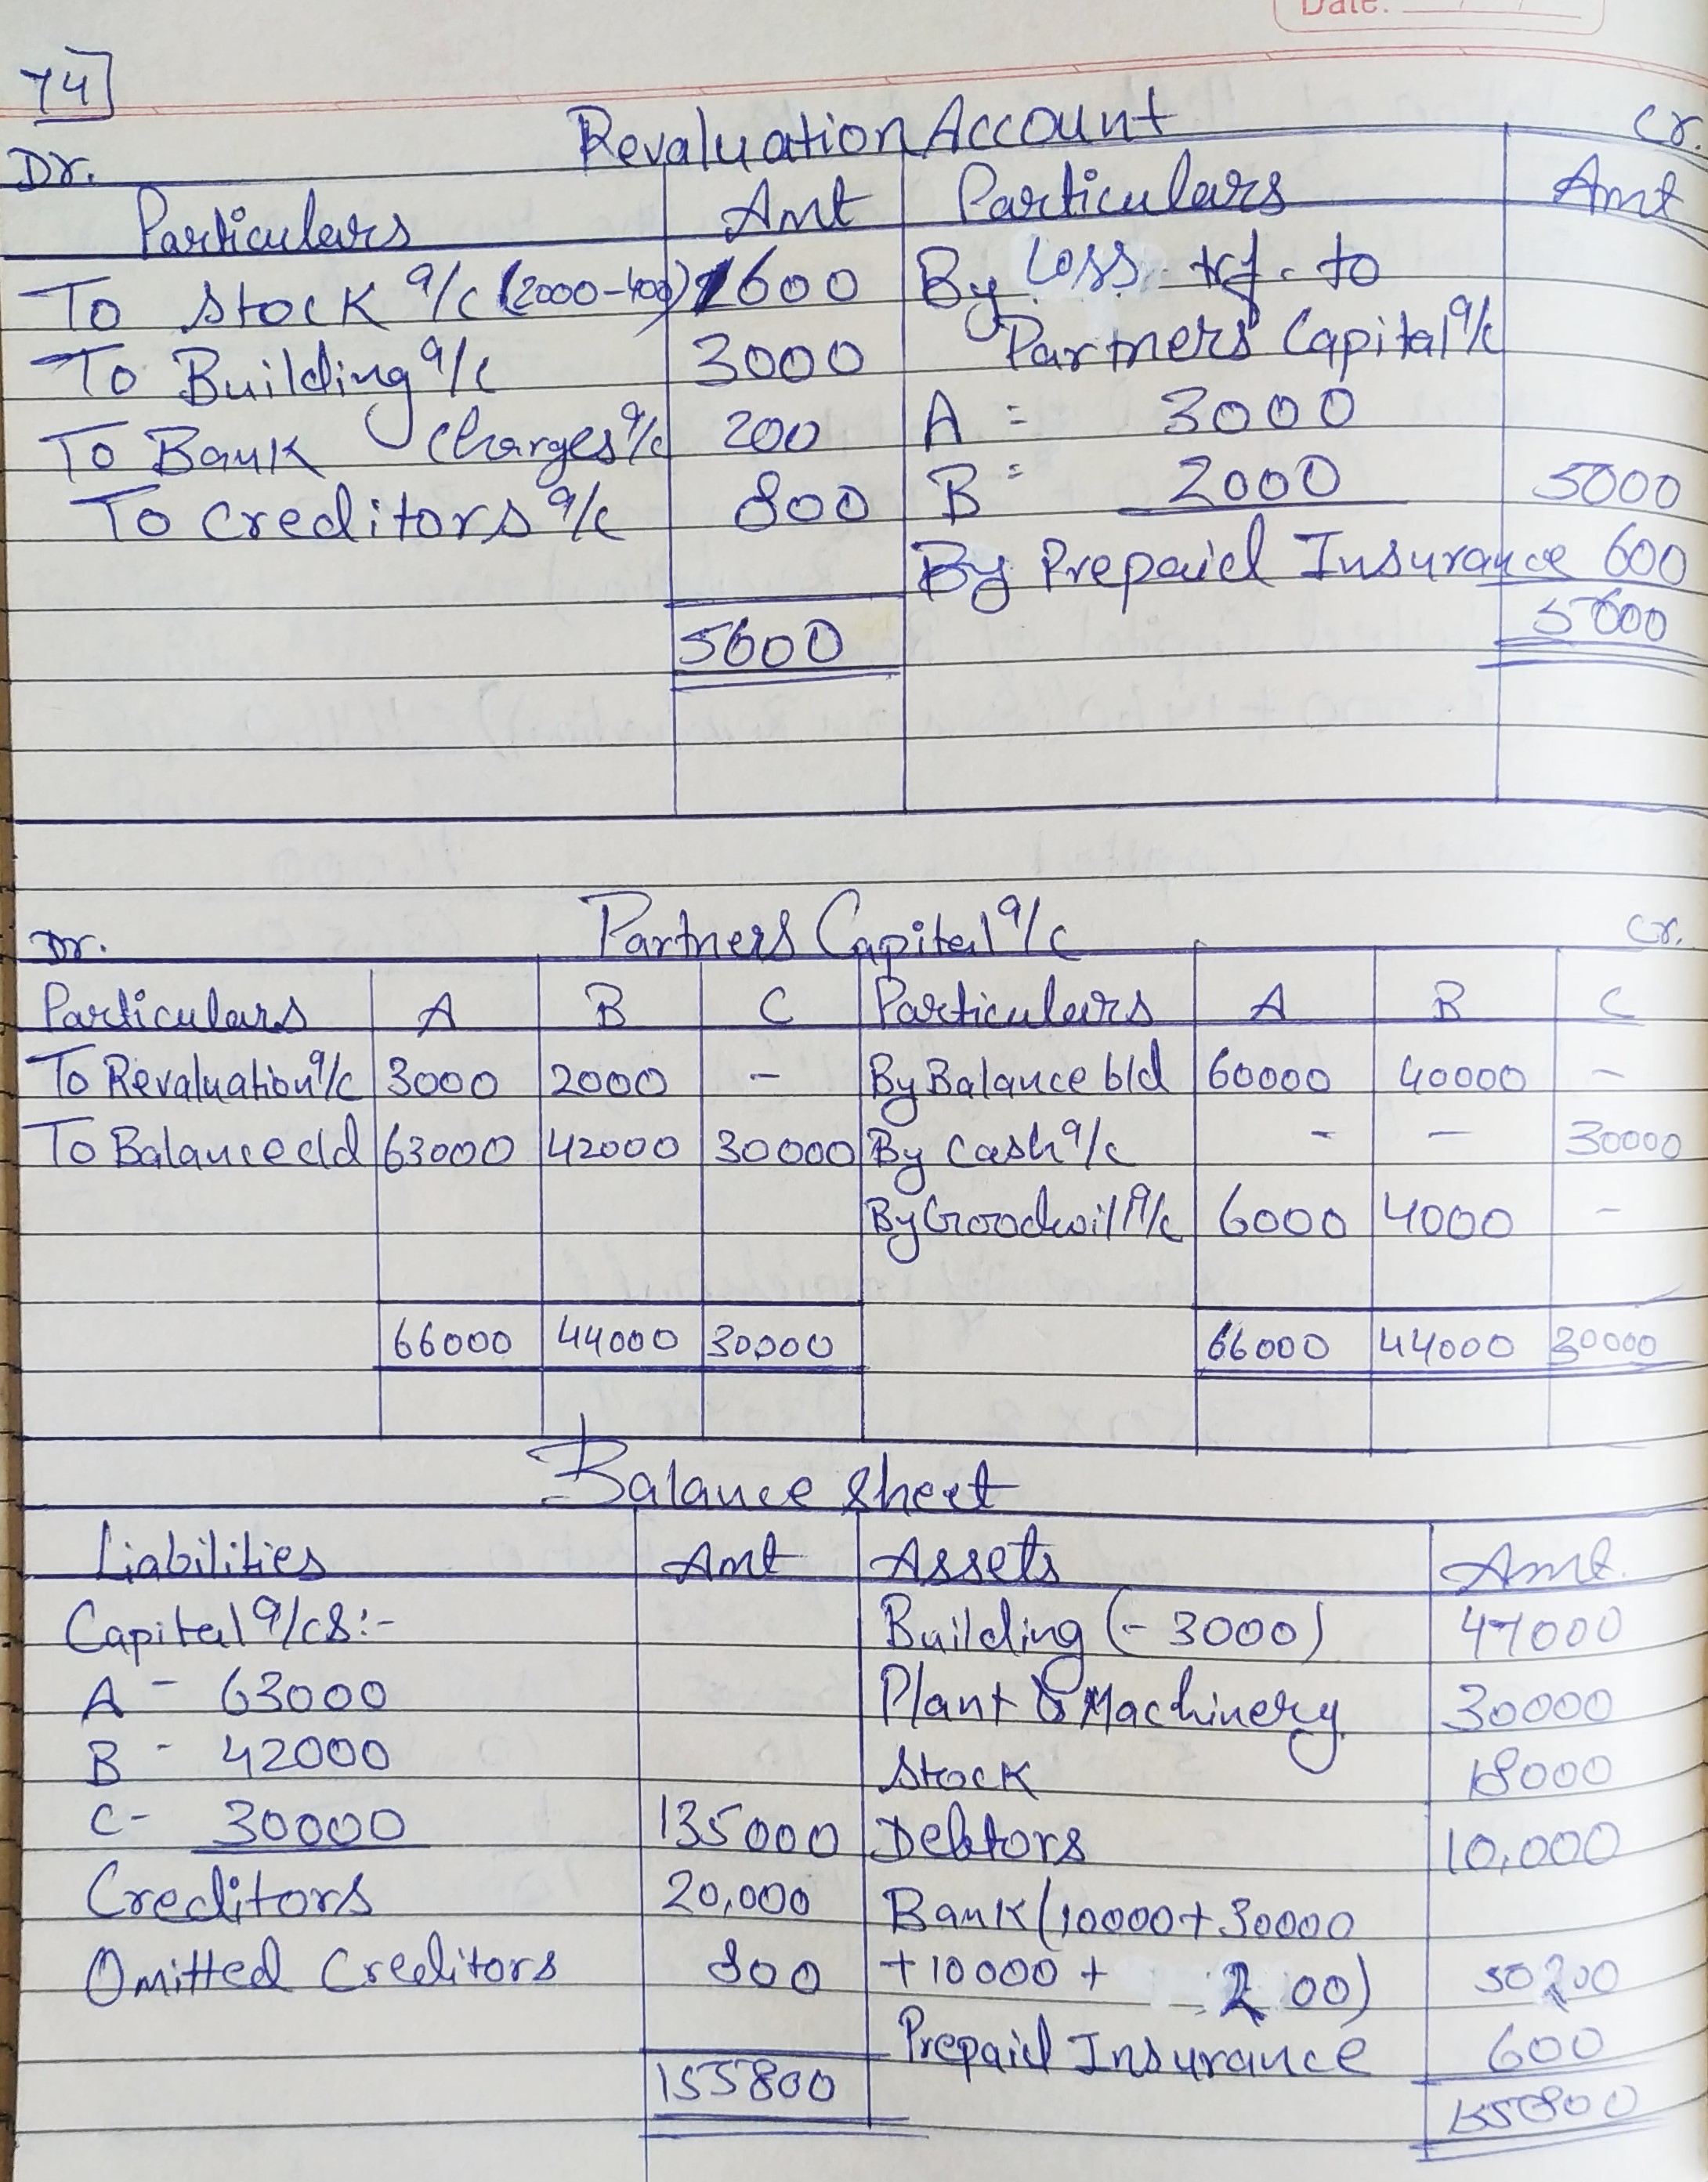 Date:
74
Revaluation Account
Dr. Cr.
Particulars Amt Particulars Amt
To Stock a/c (2000-400) 1600 By Loss trf. to
To Building a/c 3000 Partners Capital a/c
To Bank Charges a/c 200 A = 3000
To Creditors a/c 800 B = 2000 5000
By Prepaid Insurance 600
5600 5600
Partners Capital a/c
Dr. Cr.
Particulars A B C Particulars A B C
To Revaluation a/c 3000 2000 - By Balance b/d 60000 40000 -
To Balance c/d 63000 42000 30000 By Cash a/c - - 30000
By Goodwill A/c 6000 4000 -
66000 44000 30000 66000 44000 30000
Balance Sheet
Liabilities Amt Assets Amt.
Capital a/cs:- Building (- 3000) 47000
A - 63000 Plant & Machinery 30000
B - 42000 Stock 18000
C- 30000 135000 Debtors 10,000
Creditors 20,000 Bank (10000+30000
Omitted Creditors 800 +10000 + 200) 50200
Prepaid Insurance 600
155800 155800